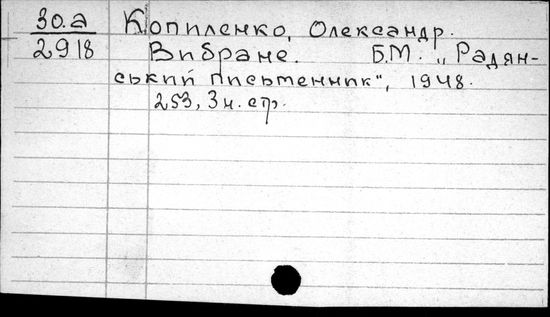 30.а
2918
Копиленко, Олександр.
Вибране. Б.М. „Радян-
ський письменник", 1948.
253, 3 н. стр.